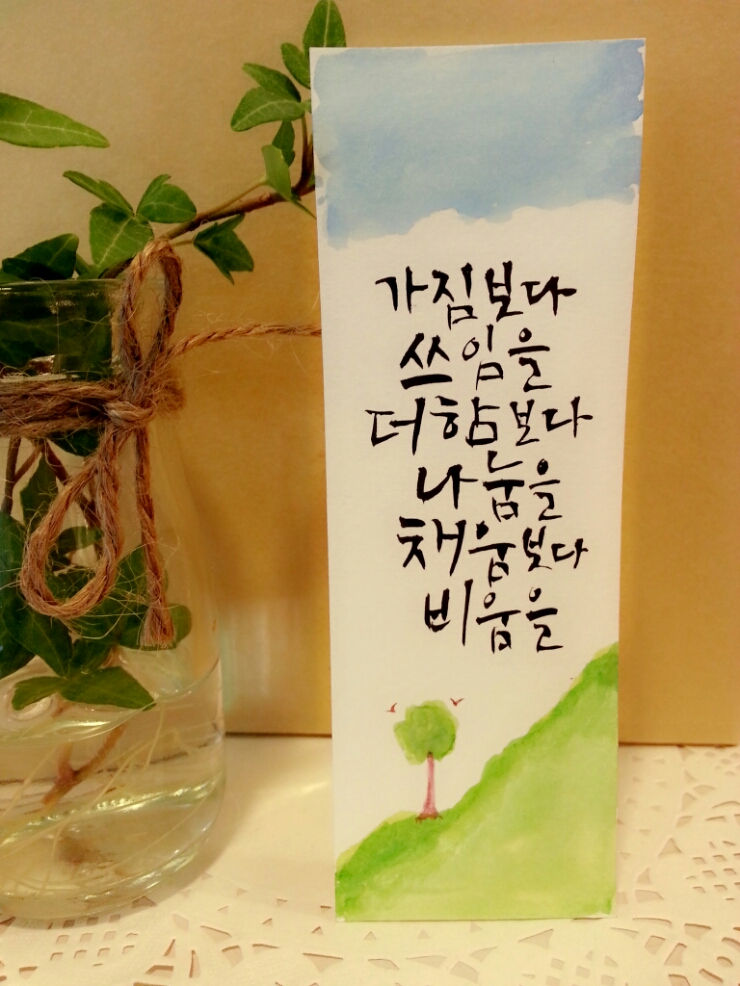 가짐보다
쓰임을
더함보다
나눔을
채움보다
비움을